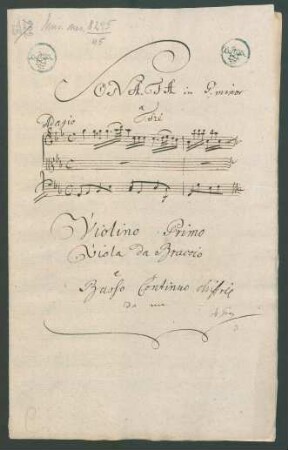 Mus. ms. 8295
SONATA in G. minor
a
Tre
Adagio
Violino Primo
Viola da Braccio
e
Basso Continuo chifrée